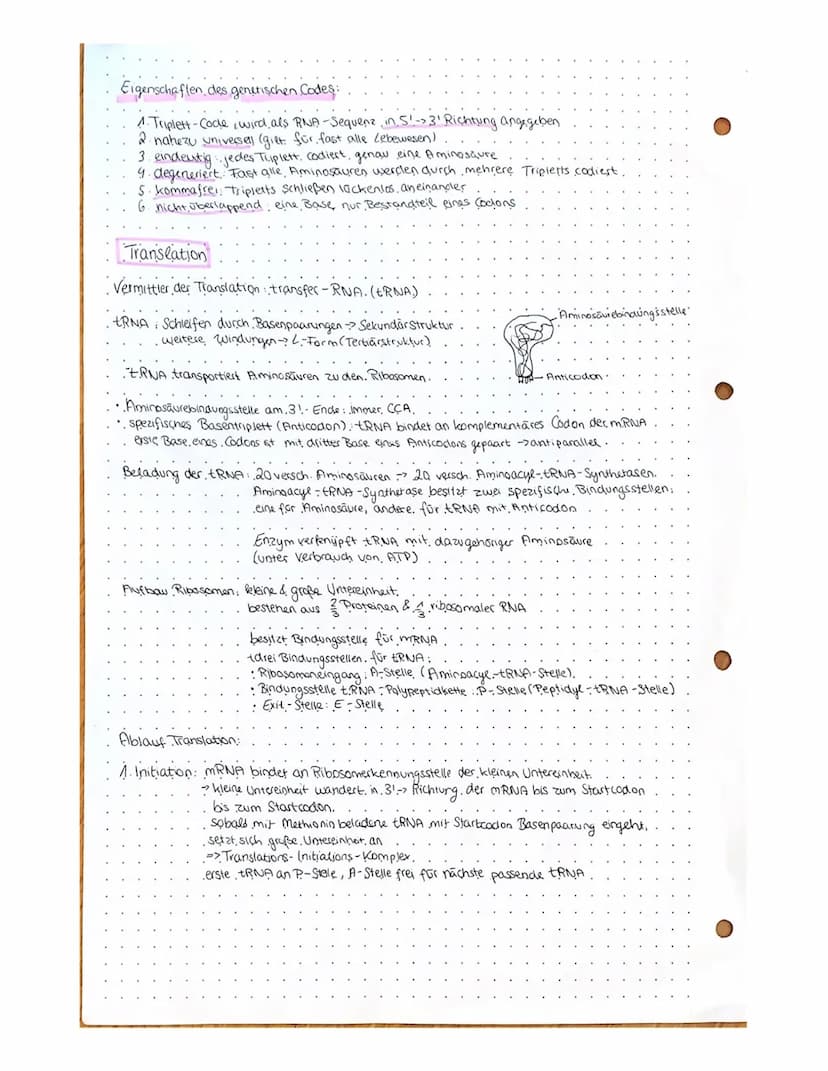 Eigenschaften des genetischen Codes:
1. Triplett-Code, wird als RNA-Sequenz in 5'->3' Richtung angegeben
2. nahezu universell (gilt für fast alle Lebewesen)
3. eindeutig: jedes Triplett codiert genau eine Aminosäure
4. degeneriert: Fast alle Aminosäuren werden durch mehrere Tripletts codiert
5. kommafrei: Tripletts schließen lückenlos aneinander
6. nicht überlappend: eine Base nur Bestandteil eines Codons
Translation
Vermittler der Translation: transfer-RNA (tRNA)
tRNA: Schleifen durch Basenpaarungen -> Sekundärstruktur
weitere Windungen -> L-Form (Tertiärstruktur)
Aminosäurebindungsstelle
tRNA transportiert Aminosäuren zu den Ribosomen.
Anticodon
• Aminosäurebindungsstelle am 3'-Ende: immer CCA
• spezifisches Basentriplett (Anticodon): tRNA bindet an komplementäres Codon der mRNA
erste Base eines Codons ist mit dritter Base eines Anticodons gepaart -> antiparallel
Beladung der tRNA: 20 versch. Aminosäuren -> 20 versch. Aminoacyl-tRNA-Synthetasen
Aminoacyl-tRNA-Synthetase besitzt zwei spezifische Bindungsstellen:
eine für Aminosäure, andere für tRNA mit Anticodon
Enzym verknüpft tRNA mit dazugehöriger Aminosäure
(unter Verbrauch von ATP)
Aufbau Ribosomen: kleine & große Untereinheit
bestehen aus 2/3 Proteinen & 1/3 ribosomaler RNA
besitzt Bindungsstelle für mRNA
+drei Bindungsstellen für tRNA:
• Ribosomeneingang: A-Stelle (Aminoacyl-tRNA-Stelle)
• Bindungsstelle tRNA-Polypeptidkette: P-Stelle (Peptidyl-tRNA-Stelle)
• Exit-Stelle: E-Stelle
Ablauf Translation:
1. Initiation: mRNA bindet an Ribosomerkennungsstelle der kleinen Untereinheit
-> kleine Untereinheit wandert in 3'-> Richtung der mRNA bis zum Startcodon
bis zum Startcodon.
sobald mit Methionin beladene tRNA mit Startcodon Basenpaarung eingeht,
setzt sich große Untereinheit an
=> Translations-Initiations-Komplex
erste tRNA an P-Stelle, A-Stelle frei für nächste passende tRNA